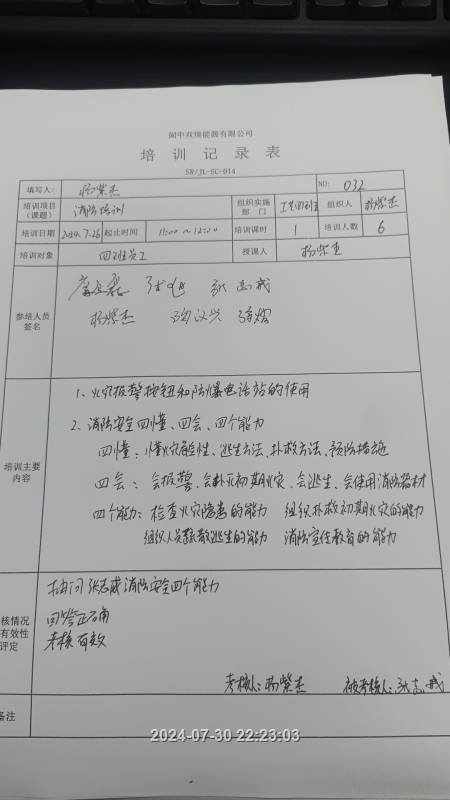 阆中双瑞能源有限公司
培训记录表
SR/JL-SC-014
填写人: 杨紫杰 NO: 032
培训项目(课题) 消防培训 组织实施部门 工艺四班 组织人 杨紫杰
培训日期 2024.7.26 起止时间 11:00 ~ 12:00 培训课时 1 培训人数 6
培训对象 四班员工 授课人 杨紫杰
参培人员签名
杨紫杰
培训主要内容
1、火灾报警按钮和防爆电话站的使用
2、消防安全四懂、四会、四个能力
四懂: 懂火灾危险性、逃生方法、扑救方法、预防措施
四会: 会报警、会扑灭初期火灾、会逃生、会使用消防器材
四个能力: 检查火灾隐患的能力 组织扑救初期火灾的能力
组织人员疏散逃生的能力 消防宣传教育的能力
核情况
有效性
评定
抽问张志威消防安全四个能力
回答正确
考核有效
考核人: 杨紫杰 被考核人: 张志威
备注
2024-07-30 22:23:03